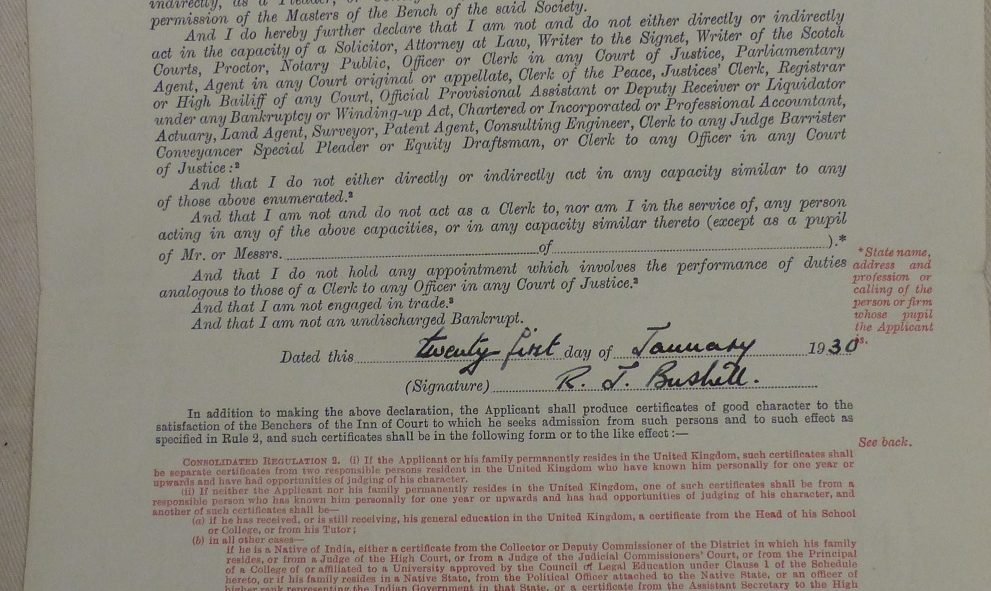 indirectly, as a Pleader, or
permission of the Masters of the Bench of the said Society.
And I do hereby further declare that I am not and do not either directly or indirectly
act in the capacity of a Solicitor, Attorney at Law, Writer to the Signet, Writer of the Scotch
Courts, Proctor, Notary Public, Officer or Clerk in any Court of Justice, Parliamentary
Agent, Agent in any Court original or appellate, Clerk of the Peace, Justices' Clerk, Registrar
or High Bailiff of any Court, Official Provisional Assistant or Deputy Receiver or Liquidator
under any Bankruptcy or Winding-up Act, Chartered or Incorporated or Professional Accountant,
Actuary, Land Agent, Surveyor, Patent Agent, Consulting Engineer, Clerk to any Judge Barrister
Conveyancer Special Pleader or Equity Draftsman, or Clerk to any Officer in any Court
of Justice:²
And that I do not either directly or indirectly act in any capacity similar to any
of those above enumerated.²
And that I am not and do not act as a Clerk to, nor am I in the service of, any person
acting in any of the above capacities, or in any capacity similar thereto (except as a pupil
of Mr. or Messrs. of ).*
And that I do not hold any appointment which involves the performance of duties
analogous to those of a Clerk to any Officer in any Court of Justice.²
And that I am not engaged in trade.³
And that I am not an undischarged Bankrupt.
* State name,
address and
profession or
calling of the
person or firm
whose pupil
the Applicant
is.
Dated this twenty first day of January 1930
(Signature) R. J. Bushell.
In addition to making the above declaration, the Applicant shall produce certificates of good character to the
satisfaction of the Benchers of the Inn of Court to which he seeks admission from such persons and to such effect as
specified in Rule 2, and such certificates shall be in the following form or to the like effect:—
See back.
CONSOLIDATED REGULATION 2. (i) If the Applicant or his family permanently resides in the United Kingdom, such certificates shall
be separate certificates from two responsible persons resident in the United Kingdom who have known him personally for one year or
upwards and have had opportunities of judging of his character.
(ii) If neither the Applicant nor his family permanently resides in the United Kingdom, one of such certificates shall be from a
responsible person who has known him personally for one year or upwards and has had opportunities of judging of his character, and
another of such certificates shall be—
(a) if he has received, or is still receiving, his general education in the United Kingdom, a certificate from the Head of his School
or College, or from his Tutor;
(b) in all other cases—
if he is a Native of India, either a certificate from the Collector or Deputy Commissioner of the District in which his family
resides, or from a Judge of the High Court, or from a Judge of the Judicial Commissioners' Court, or from the Principal
of a College of or affiliated to a University approved by the Council of Legal Education under Clause 1 of the Schedule
hereto, or if his family resides in a Native State, from the Political Officer attached to the Native State, or an officer of
higher rank representing the Indian Government in that State, or a certificate from the Assistant Secretary to the High